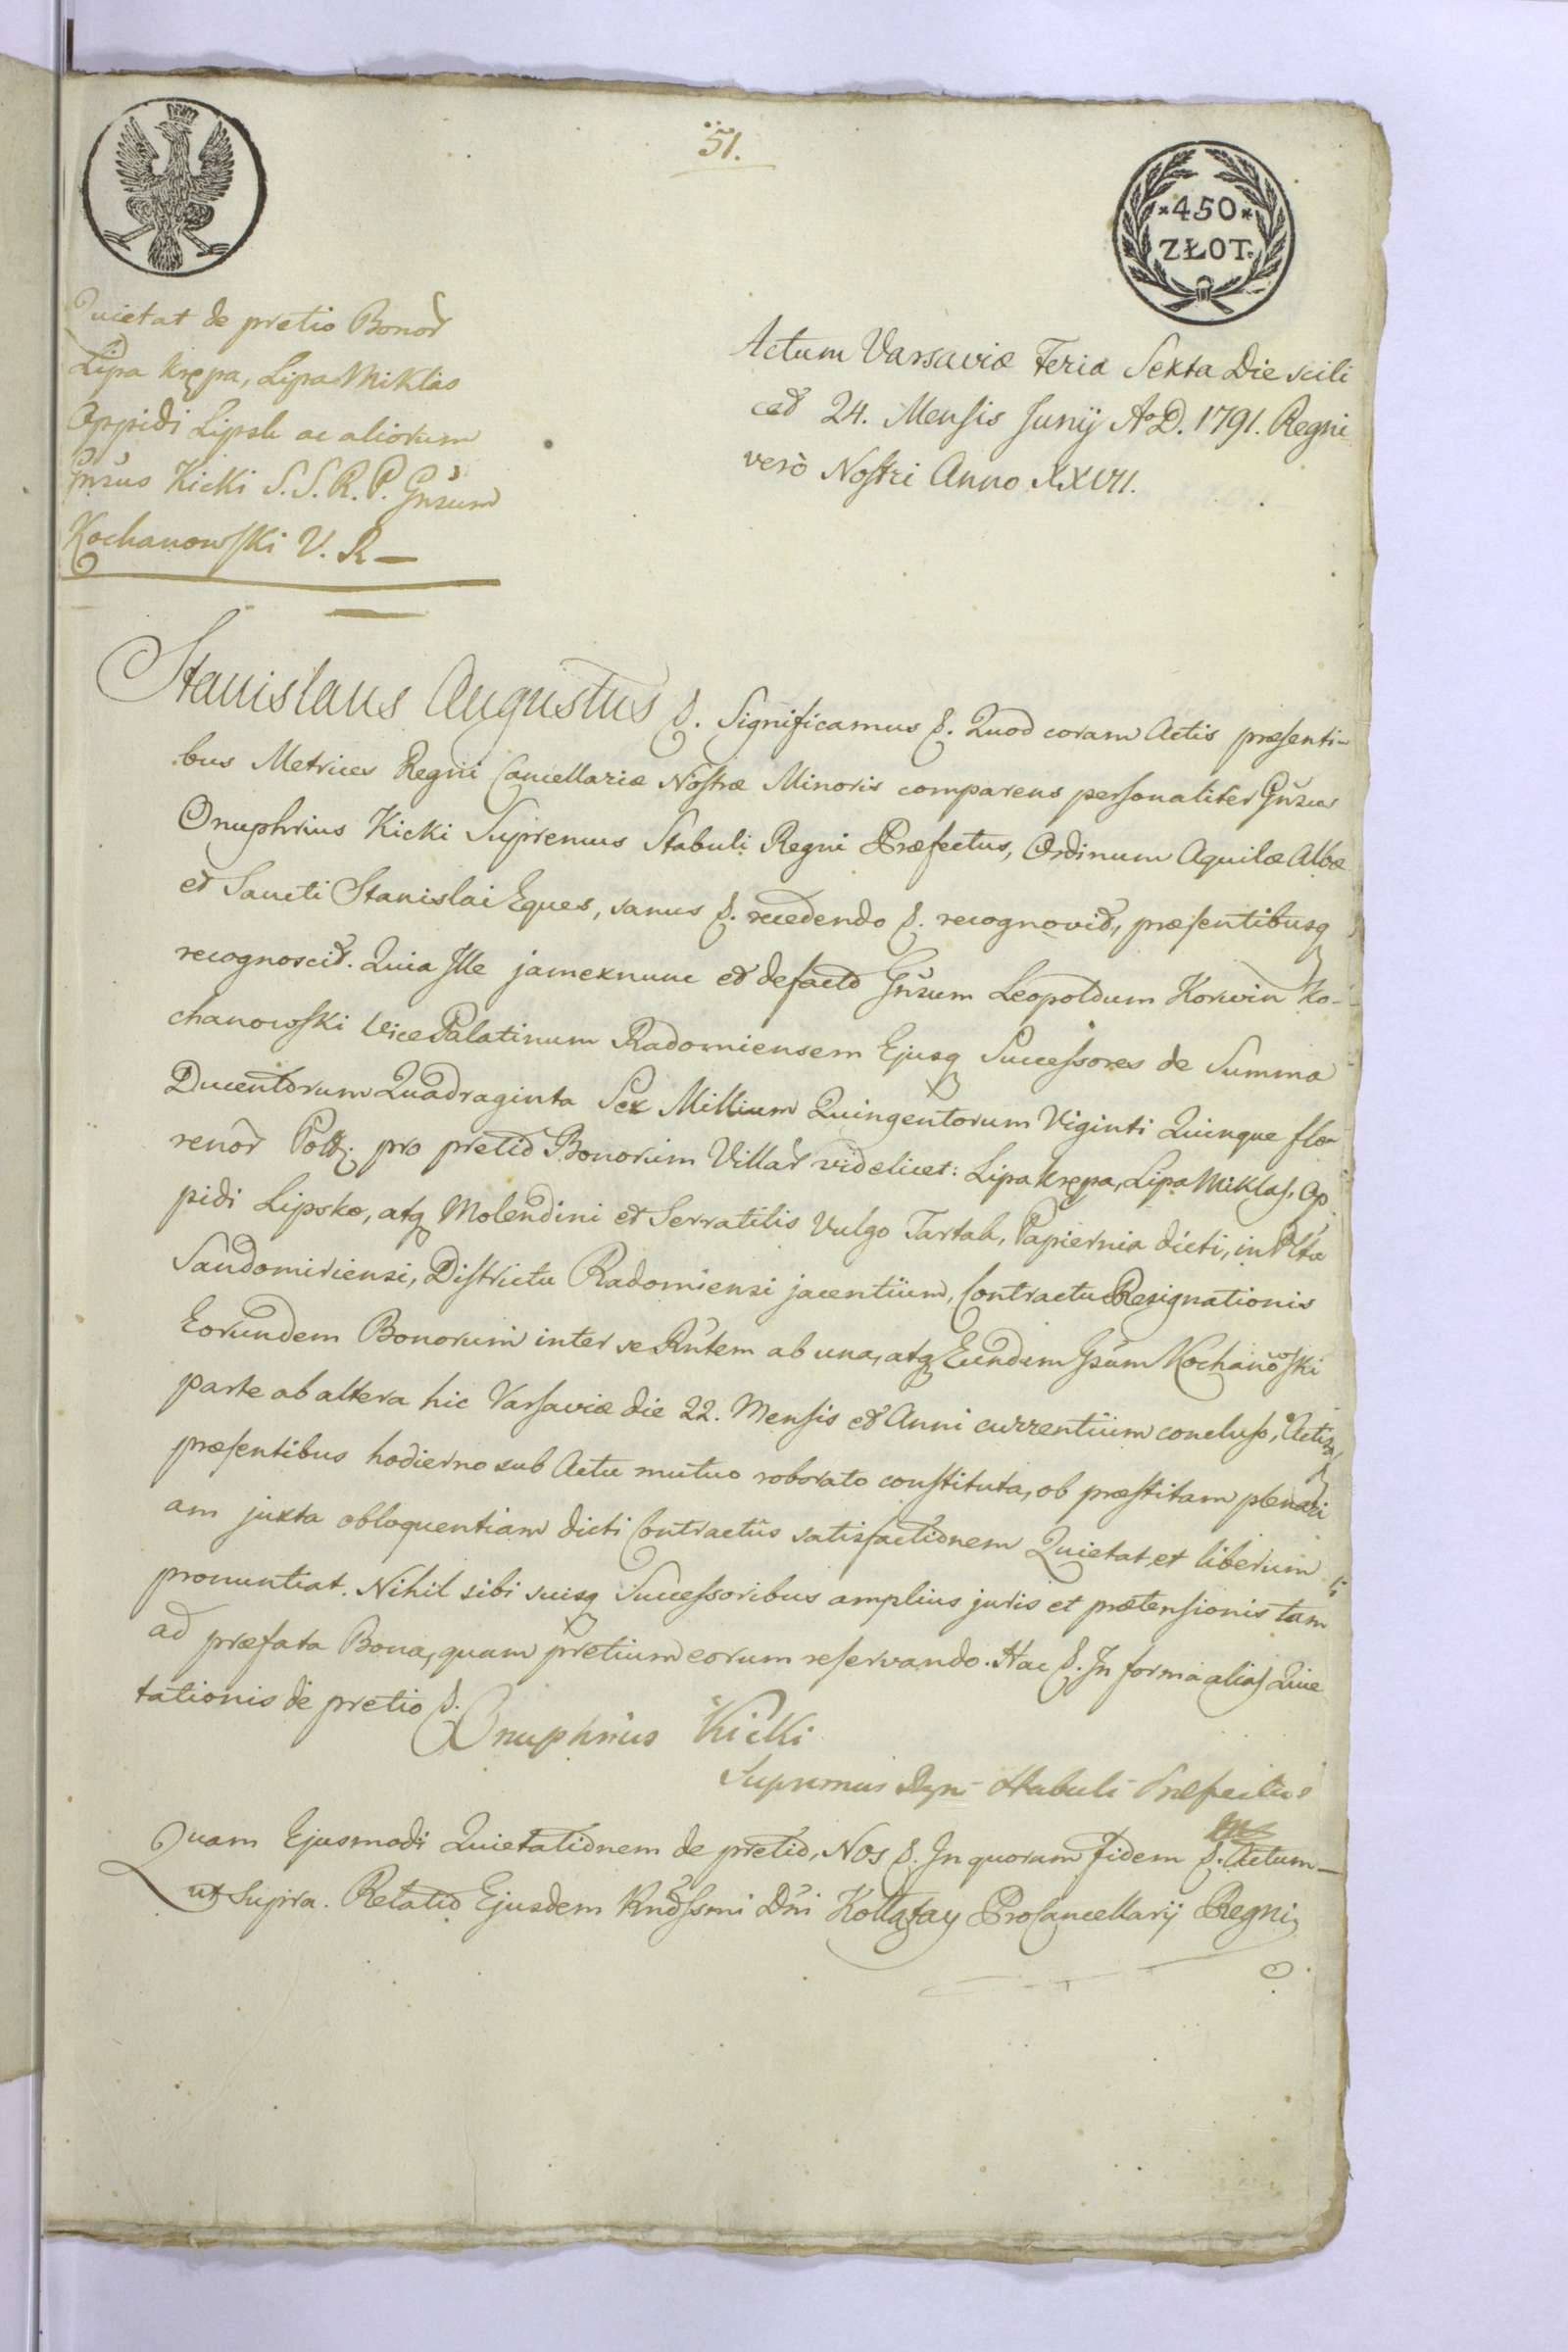 51.
*450*
ZŁOT.
Quietat de pretio Bonor
Lipa Krępa, Lipa Miklas
Oppidi Lipsk ac aliorum
Gnsus Kicki S. S. R. P. Gnsum
Kochanowski V. R —
Actum Varsaviæ Feria Sexta Die scili
cet 24. Mensis Junij A°D. 1791. Regni
verò Nostri Anno XXVII.
Stanislaus Augustus &. Significamus &. Quod coram Actis præsenti-
bus Metrices Regni Cancellariæ Nostræ Minoris comparens personaliter Gnsus
Onuphrius Kicki Supremus Stabuli Regni Præfectus, Ordinum Aquilæ Albæ
et Sancti Stanislai Eques, sanus &. recedendo &. recognovit, præsentibusq
recognoscit. Quia Ille jamexnunc et defacto Gnsum Leopoldum Korwin Ko-
chanowski Vice Palatinum Radomiensem Ejusq Successores de Summa
Ducentorum Quadraginta Sex Millium Quingentorum Viginti Quinque flo-
renor Poll. pro pretio Bonorum Villar videlicet: Lipa Krępa, Lipa Miklas, Op
pidi Lipsko, atq Molendini et Serratilis Vulgo Tartak, Papiernia dicti, in Pltu
Sandomiriensi, Districtu Radomiensi jacentium, Contractu Resignationis
Eorundem Bonorum inter se Rntem ab una, atq Eundem Gsum Kochanowski
parte ab altera hic Varsaviæ die 22. Mensis et Anni currentium concluso, Actisq
præsentibus hodierno sub Actu mutuo roborato constituta, ob præstitam plenari
am juxta obloquentiam dicti Contractûs satisfactionem Quietat et liberum
pronuntiat. Nihil sibi suisq Successoribus amplius juris et prætensionis tam
ad præfata Bona, quam pretium eorum reservando. Hac &. In forma alias Quie
tationis de pretio &.
Onuphrius Kicki
Supremus Regni Stabuli Præfectus
Quam Ejusmodi Quietationem de pretio, Nos &. In quorum fidem &. Actum—
ut Supra. Relatio Ejusdem Rndssmi Dni Kołłątay Procancellarij Regni